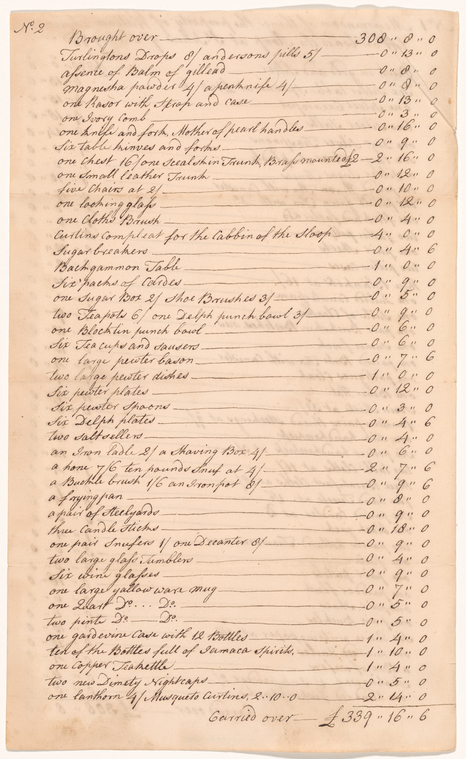 No. 2
Brought over 308 " 8 " 0
Turlingtons Drops 8/ andersons pills 5/ 0 " 13 " 0
assence of Balm of gillead 0 " 8 " 0
magnesha powder 4/ a penknife 4/ 0 " 8 " 0
one Rasor with Strap and case 0 " 13 " 0
one Ivory Comb 0 " 3 " 0
one knife and fork, Mother of pearl handles 0 " 16 " 0
Six table knives and forks 0 " 9 " 0
one Chest 16/ one Sealskin Trunk, Brass mounted £2 2 " 16 " 0
one Small leather Trunk 0 " 12 " 0
five Chairs at 2/ 0 " 10 " 0
one looking glass 0 " 12 " 0
one Cloths Brush 0 " 4 " 0
Curtins Compleat for the Cabbin of the Sloop 4 " 0 " 0
Sugar breakers 0 " 4 " 6
Backgammon Table 1 " 0 " 0
Six packs of Cardes 0 " 9 " 0
one Sugar Box 2/ Shoe Brushes 3/ 0 " 5 " 0
two Teapots 6/ one Delph punch bowl 3/ 0 " 9 " 0
one Blocktin punch bowl 0 " 6 " 0
Six Teacups and sausers 0 " 6 " 0
one large pewter bason 0 " 7 " 6
two large pewter dishes 1 " 0 " 0
Six pewter plates 0 " 12 " 0
Six pewter Spoons 0 " 3 " 0
Six Delph plates 0 " 4 " 6
two saltsellers 0 " 4 " 0
an Iron ladle 2/ a Shaving Box 4/ 0 " 6 " 0
a hone 7/6 ten pounds Snuf at 4/ 2 " 7 " 6
a Buckle brush 1/6 an Iron pot 8/ 0 " 9 " 6
a frying pan 0 " 8 " 0
a pair of Steelyards 0 " 9 " 0
three Candle Sticks 0 " 18 " 0
one pair Snufers 1/ one Decanter 8/ 0 " 9 " 0
two large glass Tumblers 0 " 4 " 0
Six wine glasses 0 " 9 " 0
one large yallow ware mug 0 " 7 " 0
one Quart Do. ... Do. 0 " 5 " 0
two pints Do. Do. 0 " 5 " 0
one gardevine Case with 12 Bottles 1 " 4 " 0
ten of the Bottles full of Jamaca Spirits, 1 " 10 " 0
one Copper Teakettle 1 " 4 " 0
two new Dimety Nightcaps 0 " 5 " 0
one lanthorn 4/ Musqueto Curtins, 2 . 10 . 0 2 " 14 " 0
Carried over £ 339 " 16 " 6